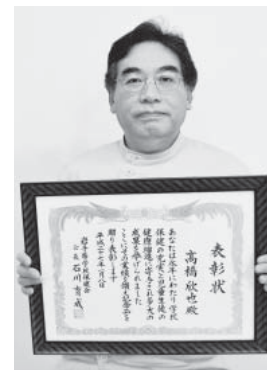 表彰状
高橋欣也殿
あなたは永年にわたり学校
保健の充実と児童生徒の
健康増進に寄与され多大の
成果を挙げられました
ここにその業績を称え記念品を
贈り表彰します
平成二十七年一月八日
岩手県学校保健会
会長 石川育成